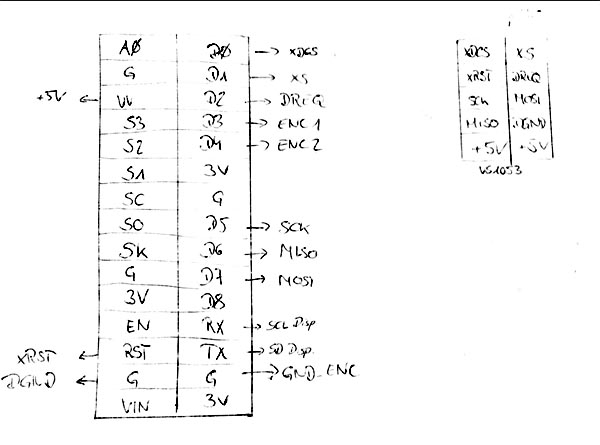 A0 D0 → XDCS
G D1 → XS
+5V ← VV D2 → DREQ
S3 D3 → ENC1
S2 D4 → ENC2
S1 3V
SC G
SO D5 → SCK
SK D6 → MISO
G D7 → MOSI
3V D8
EN RX → SCL Disp
XRST ← RST TX → SD Disp.
DGND ← G G → GND_ENC
VIN 3V
XDCS XS
XRST DREQ
SCK MOSI
MISO DGND
+5V +5V
VS1053